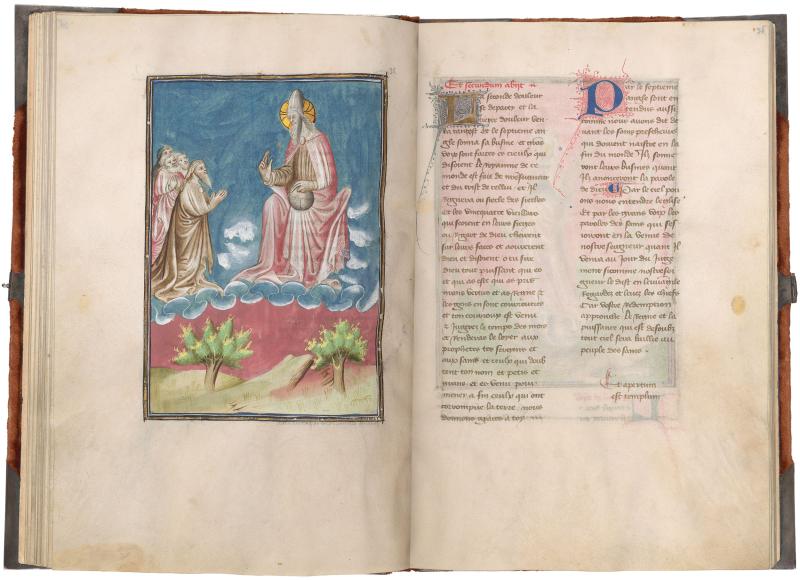 Et secundum abiit
La seconde douleur
se depart et la
tierce douleur ven
ra tantost et le septieme an
gle sonna sa busine et grans
voys sont faites es cieulx qui
disoient le royaume de ce
monde est fait de nostre
et du crist de cellui et il
regnera ou siecle des siecles
et les vincquatre vieillars
qui seoient en leurs sieges
ou regart de dieu cheurent
sur leurs faces et aourerent
dieu et disoient o tu sire
dieu tout puissant qui es
et qui as este qui as pris
grans vertus et as regne et
les gens en sont couroucees
et ton couroux est venu
a jugier le temps des mors
et rendre le loyer aux
prophetes tes servens et
aux sains et ceulx qui doub
tent ton nom et petis et
grans et es venu pour
mener a fin ceulx qui ont
corrompue la terre nous
donnons graces a toy
Par le septieme
angle sont en
tendus aussi
comme nous avons dit de
vant les sains prescheurs
qui doivent naistre en la
fin du monde Ilz sonne
ront leurs busines quant
Ilz anonceront la parole
de dieu Par le ciel pou
ons nous entendre leglise
et par les grans voys les
paroles des sains qui se
ront en la venue de
nostre seigneur quant Il
venra au jour du Juge
ment sicomme nostre sei
gneur le dist en leuvangile
Regardez et levez les chiefs
car vostre redemption
approuche Le regne et la
puissance qui est dessoubz
tout ciel sera baillee au
peuple des sains
Et apertum
est templum